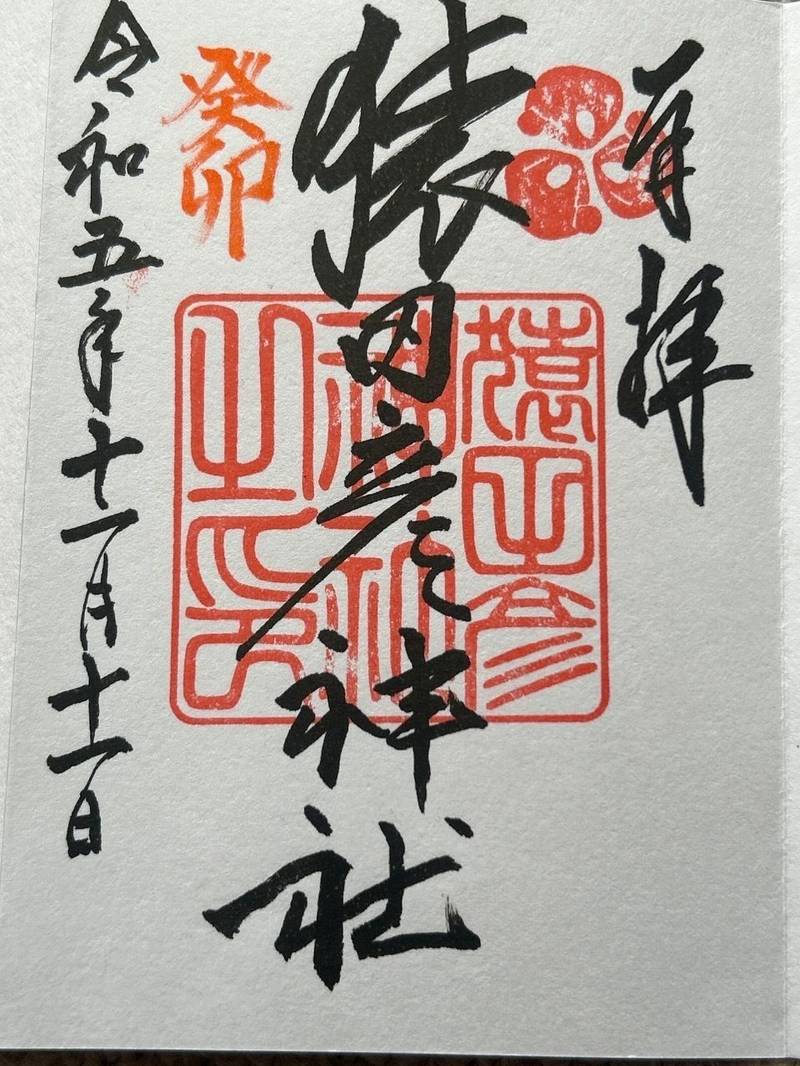 奉拝
猿田彦神社
猿田彦
神社
之印
癸卯
令和五年十一月十一日